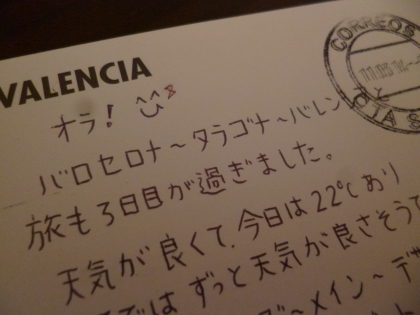 VALENCIA
CORREOS
11.05.14
オラ!
バロセロナ~タラゴナ~バレンシアと
旅も3日目が過ぎました。
天気が良くて、今日は22℃あり
では ずっと天気が良さそうで
~メイン~デザ